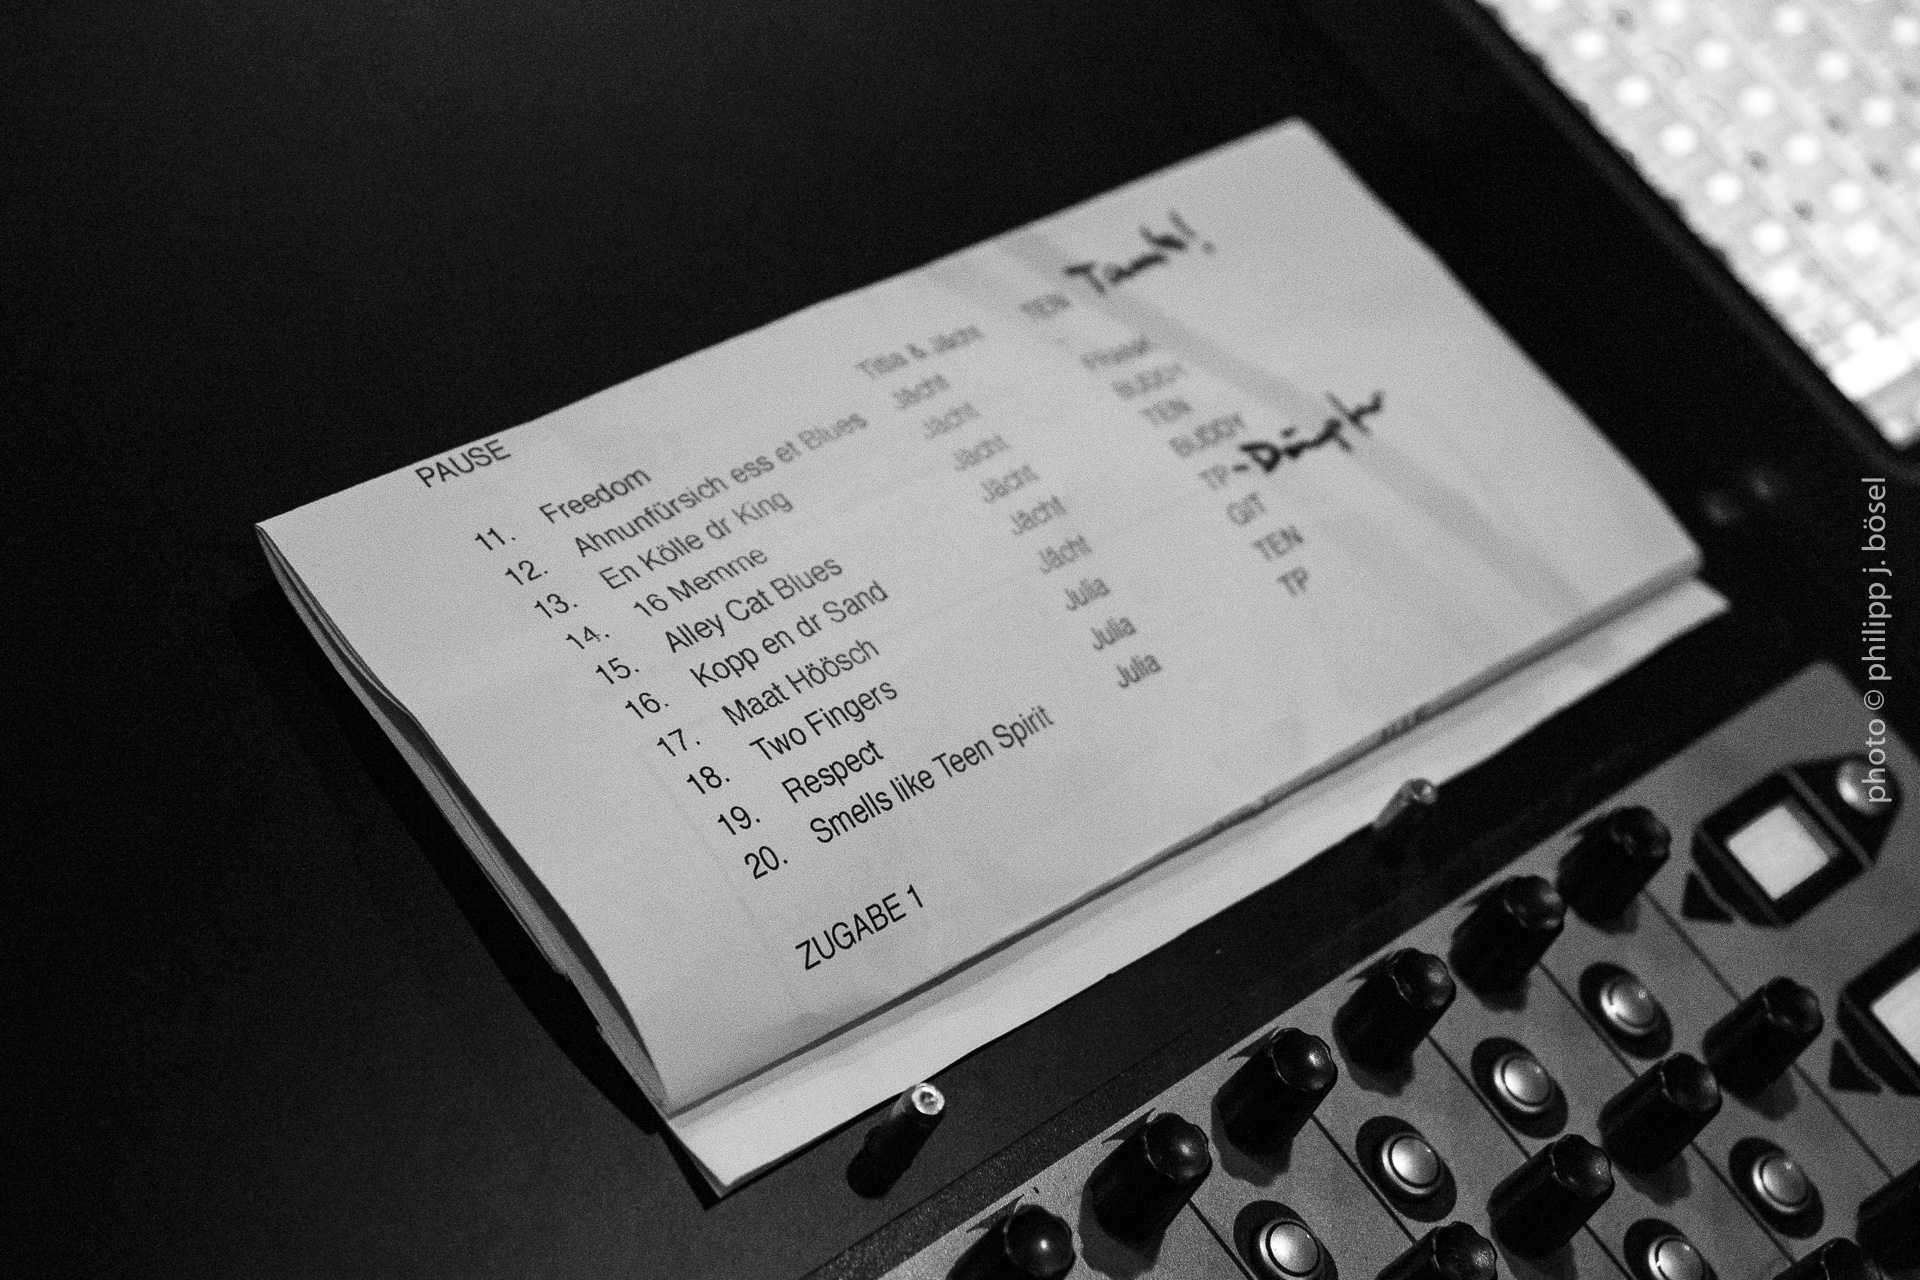 PAUSE
11. Freedom & Jächt TEN
12. Ahnunfürsich ess et Blues Jächt -
13. En Kölle dr King Jächt
14. 16 Memme Jächt BUDDY
15. Alley Cat Blues Jächt TEN
16. Kopp en dr Sand Jächt BUDDY
17. Maat Höösch Jächt TP -
18. Two Fingers Julia GIT
19. Respect Julia TEN
20. Smells like Teen Spirit Julia TP
ZUGABE 1
photo © philipp j. bösel